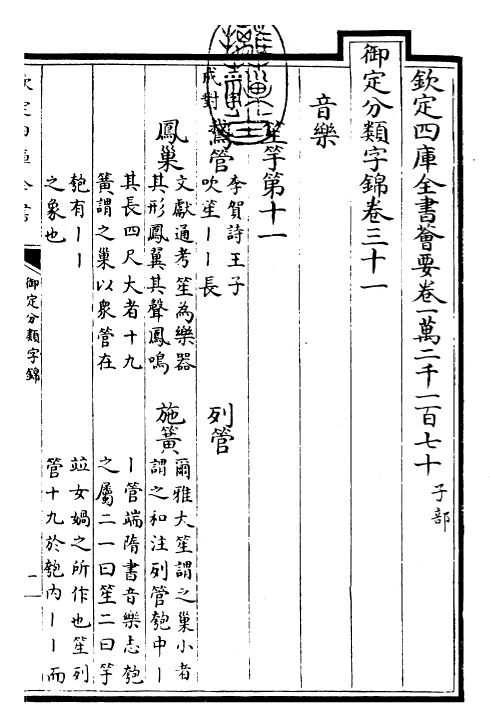 欽定四庫全書薈要卷一萬二千一百七十 子部
御定分類字錦卷三十一
音樂
笙竽第十一
成對
鵞管
李賀詩王子
吹笙丨丨長
列管
鳳巢
文獻通考笙為樂器
其形鳳翼其聲鳳鳴
其長四尺大者十九
簧謂之巢以衆管在
匏有丨丨
之象也
施簧
爾雅大笙謂之巢小者
謂之和注列管匏中丨
丨管端隋書音樂志匏
之屬二一曰笙二曰竽
竝女媧之所作也笙列
管十九於匏内丨丨而
欽定四庫全書
御定分類字錦